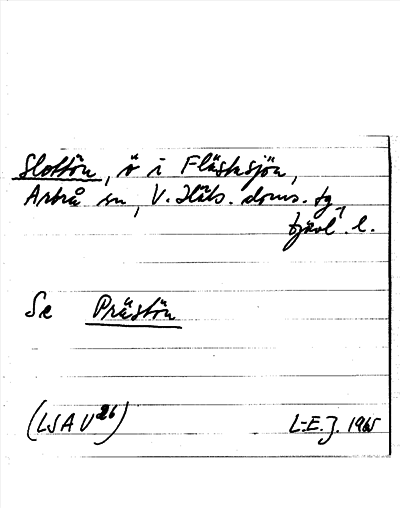 Slottön, ö i Flästasjön,
Arbrå sn, V. Häls. doms. tg
Gävl. l.
Se Prästön
(LSA U 26)
L-E. J. 1965